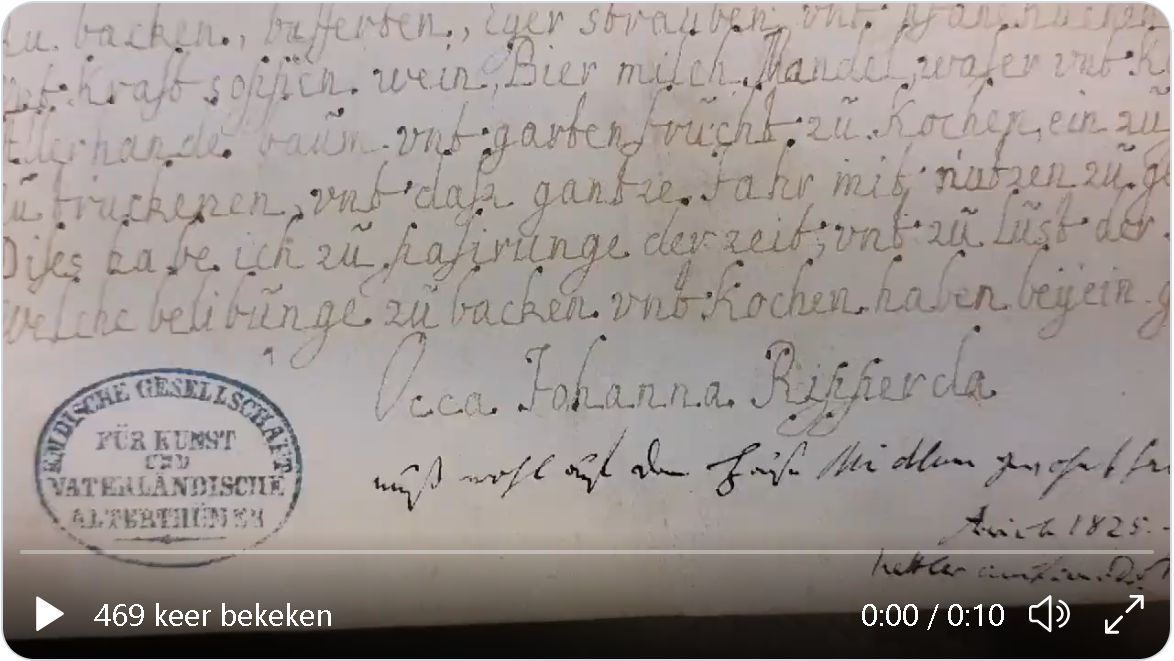 zu backen, bufferten, eyer strauben vnt pfanenkuchen
vnt kraft soppen wein, Bier milch Mandel, waser vnt K
Allerhande baüm vnt garten früchte zü Kochen, ein zü
zü trückenen, vnt daß gantze Jahr mit nützen zü ge
Dises habe ich zü pasirünge der zeit, vnt zü lüst der
welche belibünge zü backen vnt Kochen haben beÿein g
Occa Johanna Ripperda
muß wohl auf dem Hause Midlum gewohnt ha
Aurich 1825.
EMDISCHE GESELLSCHAFT
FÜR KUNST
UND
VATERLÄNDISCHE
ALTERTHÜMER
469 keer bekeken
0:00 / 0:10